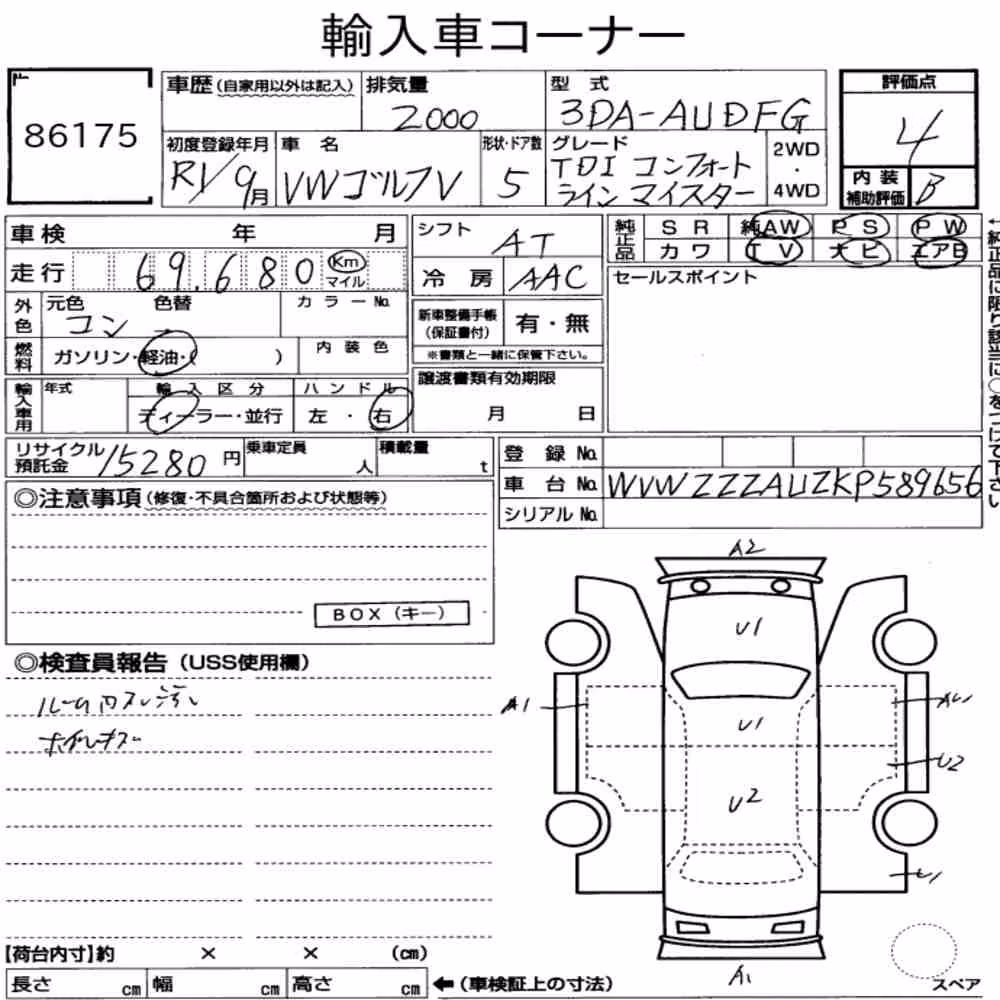 輸入車コーナー
86175
車歴(自家用以外は記入) 排気量 2000 型式 3DA-AUDFG
評価点 4
初度登録年月 R1/9月 車名 VWゴルフV 形状・ドア数 5 グレード TDI コンフォート ラインマイスター 2WD・4WD
内装補助評価 B
車検 年 月
シフト AT
純正品 SR 純AW PS PW
カワ TV ナビ エアB
走行 69,680 Km マイル
冷房 AAC
セールスポイント
外色 元色 コン 色替 カラーNo.
新車整備手帳(保証書付) 有・無
※書類と一緒に保管下さい。
燃料 ガソリン・軽油・( ) 内装色
譲渡書類有効期限
月 日
輸入車用 年式 輸入区分 ディーラー・並行 ハンドル 左・右
←純正品に限り該当に○をつけて下さい
リサイクル預託金 15280円 乗車定員 人 積載量 t
登録No.
車台No. WVWZZZAUZKP589656
シリアルNo.
◎注意事項(修復・不具合箇所および状態等)
BOX(キー)
◎検査員報告(USS使用欄)
ルーム内スレ汚レ
ホイルキズ
A2
U1
A1
U1
U2
U2
A1
【荷台内寸】約 × × (cm)
長さ cm 幅 cm 高さ cm ←(車検証上の寸法)
スペア